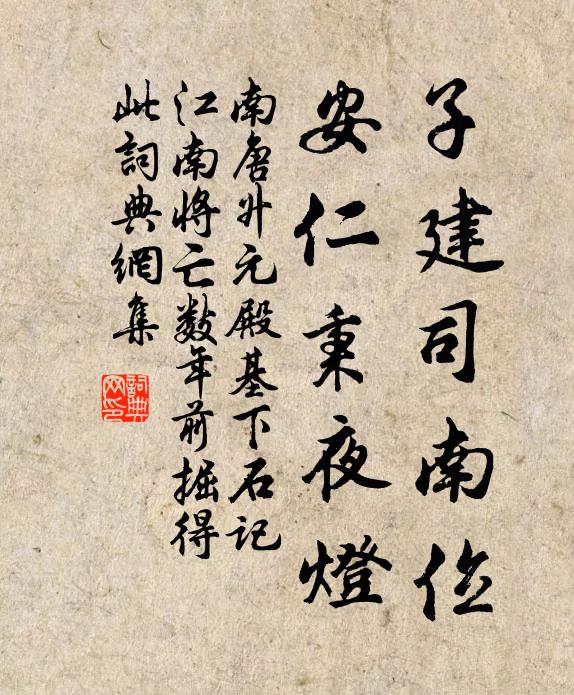 子建司南位
安仁秉夜燈
南唐升元殿基下石記
江南將亡数年前掘得
此詞典網集
詞典
网印